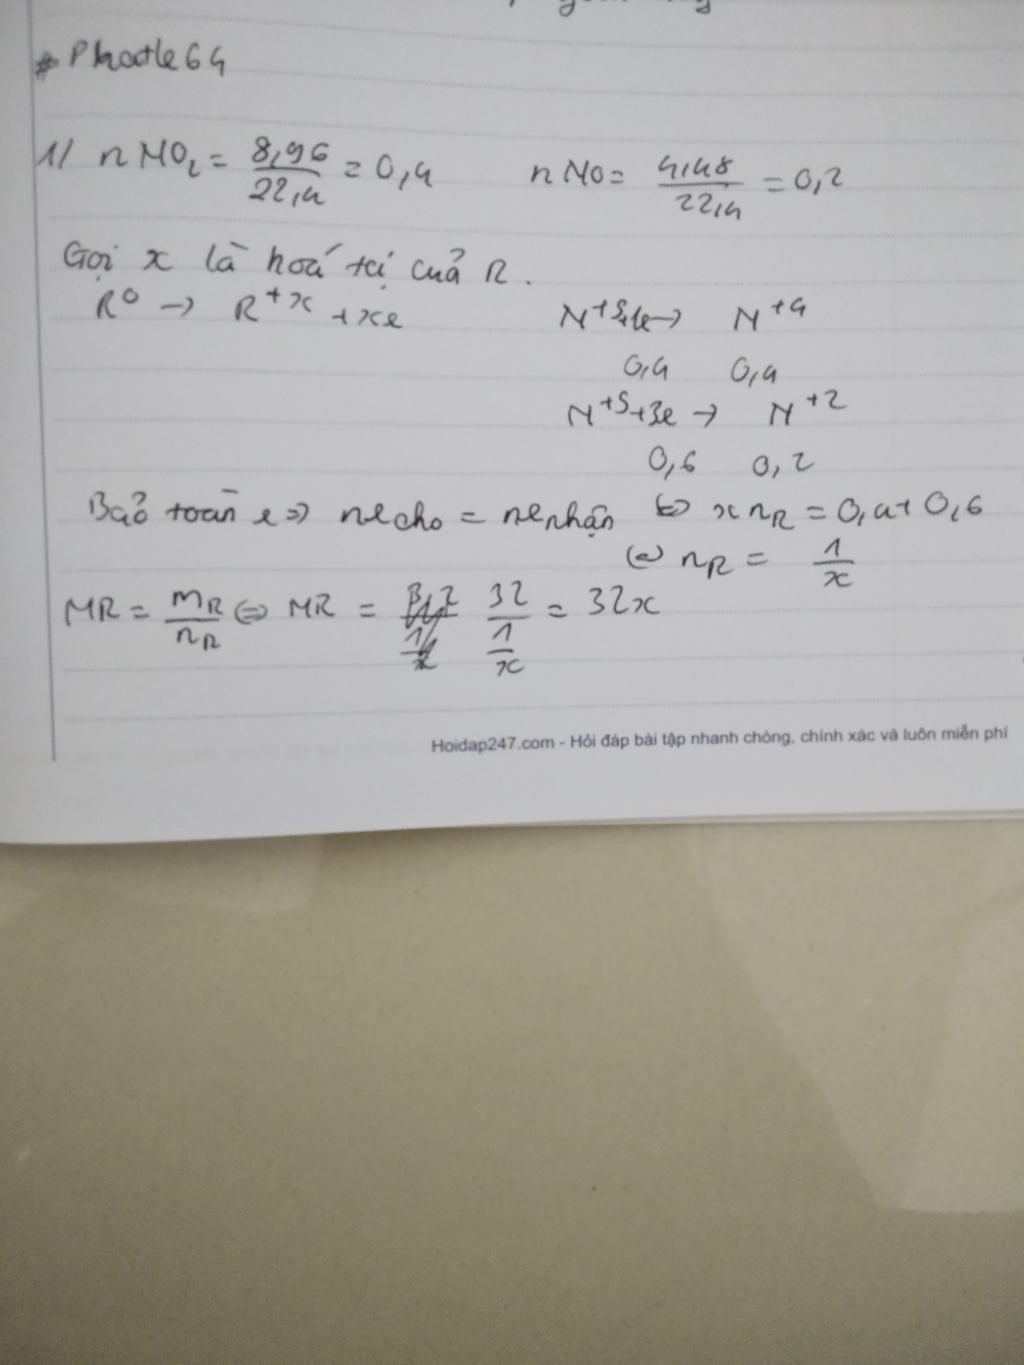 # Phootle64
1/ nNO₂ = 8,96/22,4 = 0,4 nNO = 4,48/22,4 = 0,2
Gọi x là hoá trị của R.
R⁰ → R⁺ˣ + xe N⁺⁵+1e → N⁺⁴
0,4 0,4
N⁺⁵+3e → N⁺²
0,6 0,2
Bảo toàn e ⇒ ne cho = ne nhận ⇔ x nR = 0,4+0,6
⇔ nR = 1/x
MR = mR/nR ⇔ MR = 32/(1/x) = 32x
Hoidap247.com - Hỏi đáp bài tập nhanh chóng, chính xác và luôn miễn phí